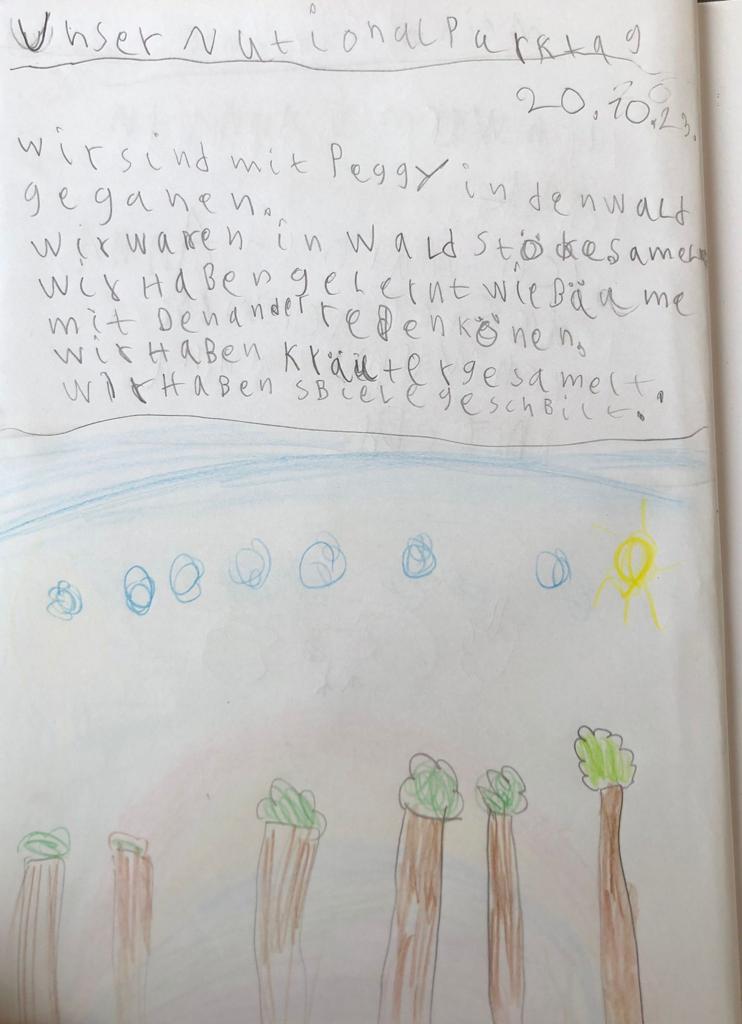 Unser NutionalParktag
20.10.23.
wir sind mit Peggy in den wald
geganen.
wir waren in wald stökesameln
wir HaBen gelernt wie Bääme
mit Denander reDen könen.
wir HaBen kräutergesamelt.
wir HaBen sBiele geschBilt.